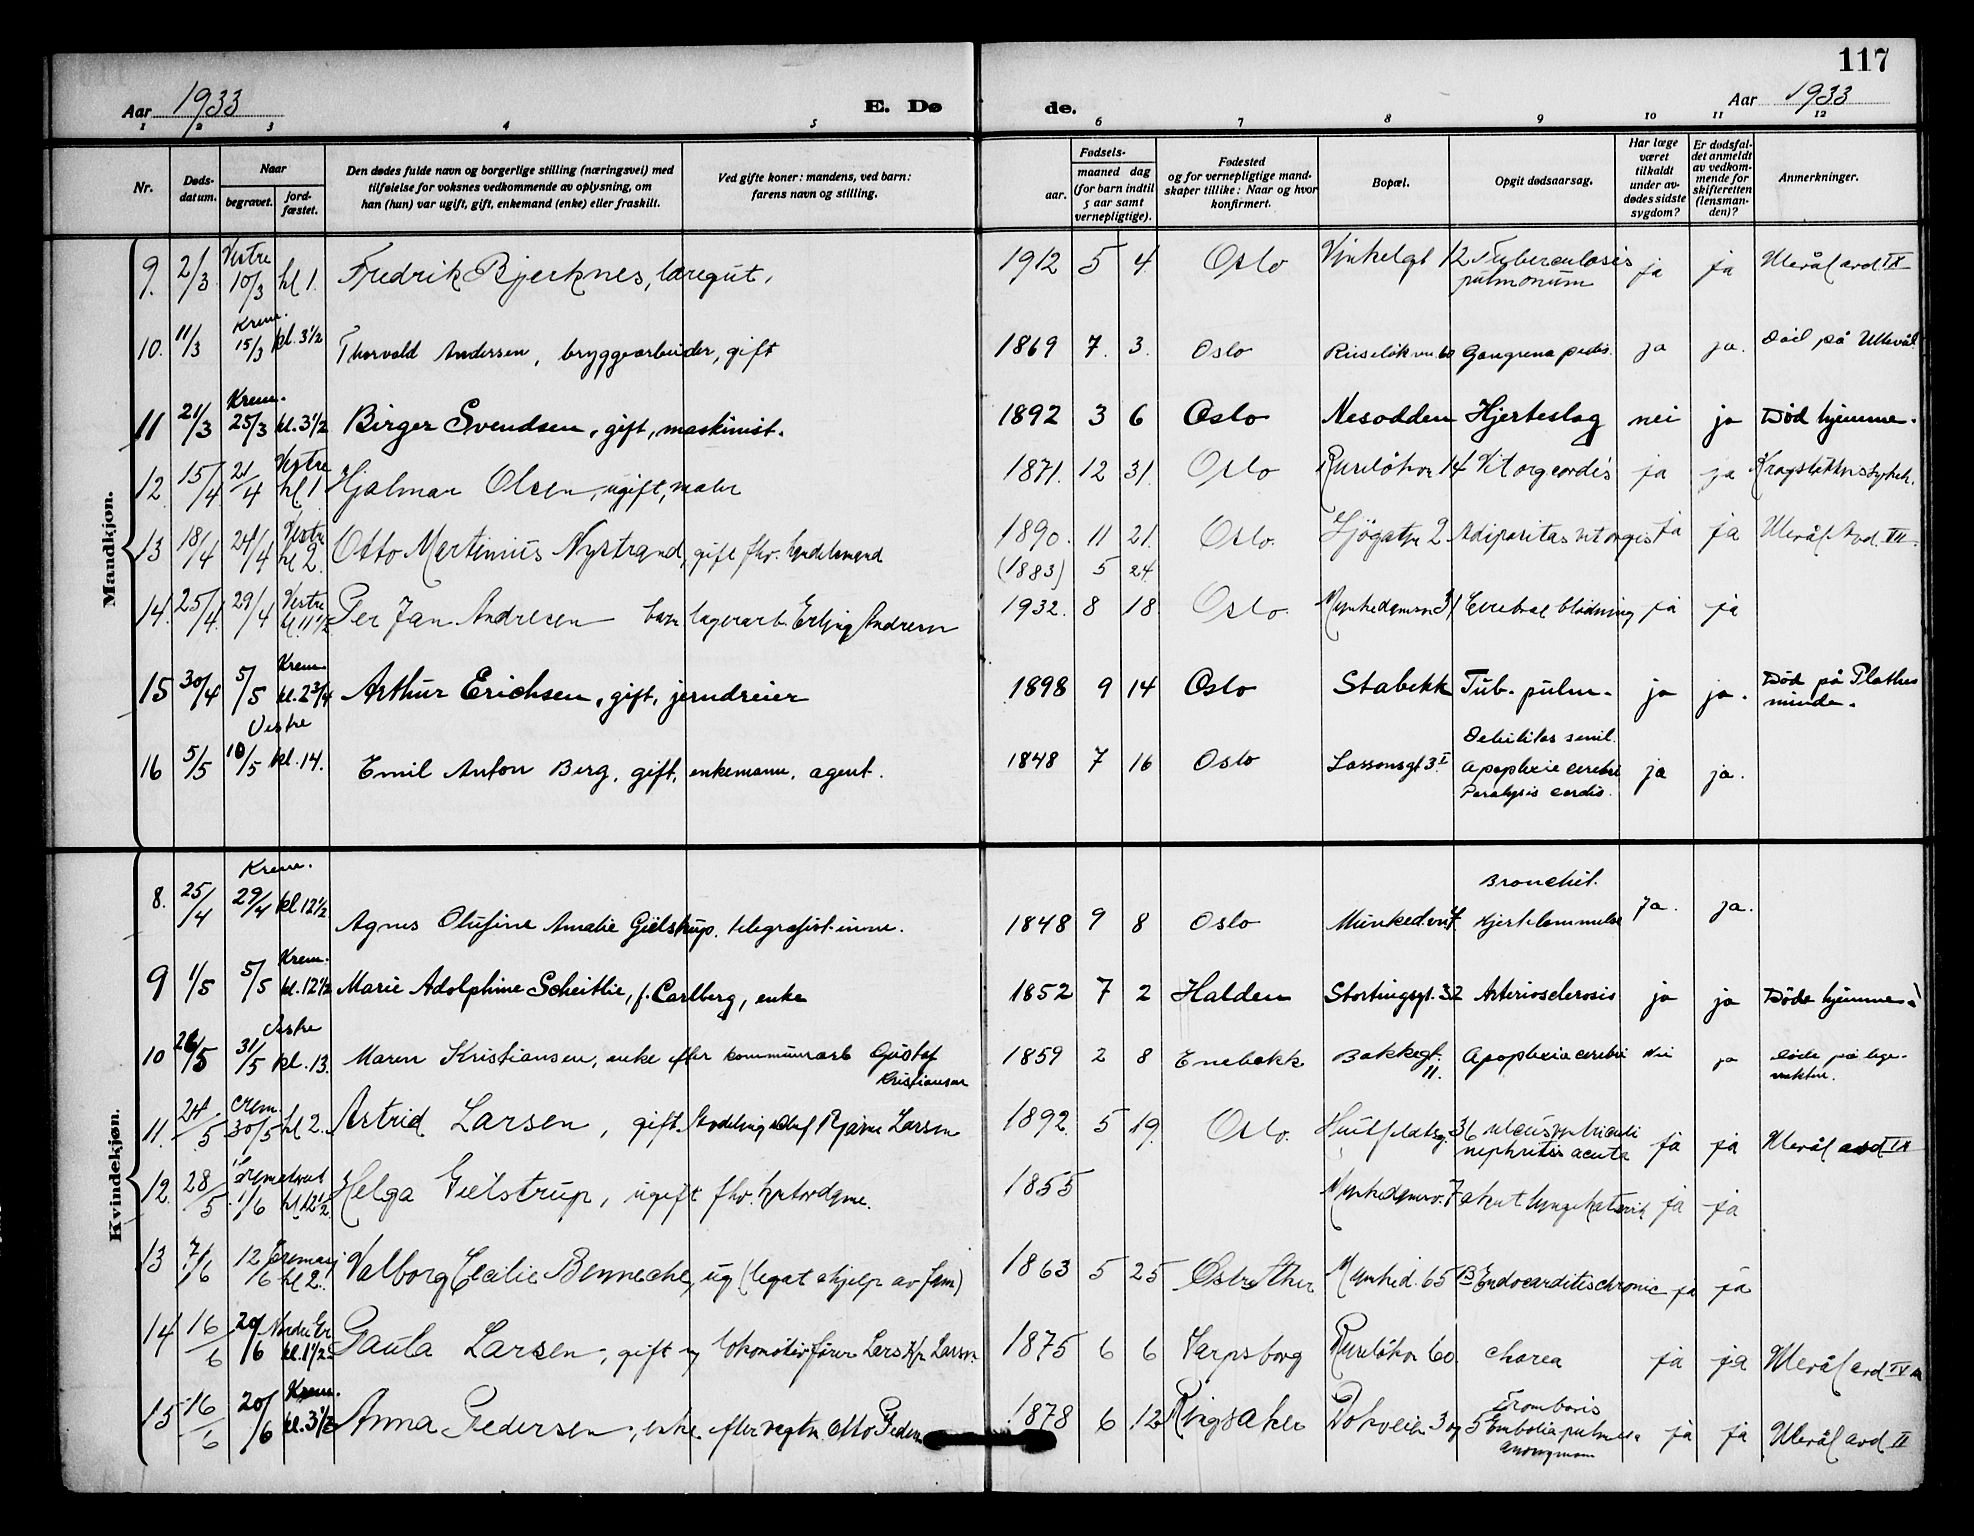 117
Aar 1933 E. Dø de. Aar 1933
1 2 3 4 5 6 7 8 9 10 11 12
Nr.
Døds-
datum.
Naar
begravet.
jord-
fæstet.
Den dødes fulde navn og borgerlige stilling (næringsvei) med
tilføielse for voksnes vedkommende av oplysning, om
han (hun) var ugift, gift, enkemand (enke) eller fraskilt.
Ved gifte koner: mandens, ved barn:
farens navn og stilling.
Fødsels-
aar.
maaned dag
(for barn indtil
5 aar samt
vernepligtige).
Fødested
og for vernepligtige mand-
skaper tillike: Naar og hvor
konfirmert.
Bopæl.
Opgit dødsaarsag.
Har læge
været
tilkaldt
under av-
dødes sidste
sygdom?
Er dødsfal-
det anmeldt
av vedkom-
mende for
skifteretten
(lensman-
den)?
Anmerkninger.
Mandkjøn.
9. 2/3 Vestre 10/3 kl 1. Fredrik Bjerknes, læregut, 1912 5 4 Oslo Vinkelgt 12 Tuberculosis pulmonum ja ja Ulevål avd IX
10. 11/3 Krem. 15/3 kl. 3 1/2 Thorvald Andersen, bryggearbeider, gift 1869 7. 3. Oslo Ruseløkvn. 60 Gangrena pedis. ja ja. Død på Ullevål
11 21/3 Krem. 25/3 kl. 3 1/2 Birger Svendsen, gift, maskinist. 1892 3 6 Oslo Nesodden Hjerteslag nei ja Død hjemme.
12 15/4 21/4 Vestre kl 1 Hjalmar Olsen, ugift, maler 1871. 12 31. Oslo Ruseløkvn 14 Vit org cordis ja ja Krogstøtten sykeh.
13 18/4 24/4 Vestre kl 2. Otto Martinius Nystrand, gift fhv. handelsmand 1890. 11 21. Oslo. Sjøgatn 2 Adipositas vit orgis ja ja Ulevål Avd. VII.
(1883) 5 24
14. 25/4. 29/4 Vestre kl 11 1/2 Per Jan Andresen barn lagerarb. Erling Andresen 1932. 8 18 Oslo Munkedamsvn 31 Cerebral blødning ja ja
15 30/4 5/5 Krem. kl. 2 3/4 Arthur Erichsen, gift, jerndreier 1898 9 14 Oslo Stabekk Tub. pulm. ja ja. Død på Plathes minde.
16 5/5 Vestre 10/5 kl. 14. Emil Anton Berg, gift, enkemann, agent. 1848 7 16 Oslo Lassonsgt 3 I Debilitas senil. Apoplexie cerebri Paralysis cordis. ja ja.
Kvindekjøn.
8. 25/4 Krem. 29/4 kl 12 1/2 Agnes Olufine Amalie Gjelstrup. telegrafist-inne. 1848 9 8 Oslo Bronchit. Hjertelammelse Ja. ja.
9 1/5 5/5 Krem. kl. 12 1/2 Marie Adolphine Scheitlie, f. Carlberg, enke 1852 7 2 Halden Stortingsgt. 32 Arteriosclerosis ja ja Døde hjemme.
10 26/5 Vestre 31/5 kl. 13. Maren Kristiansen, enke efter kommunearb Gustaf Kristiansen 1859 2 8 Enebakk Bakkegt. 11. Apoplexia cerebri Nei ja Døde på lege-vakten.
11. 24/5 Crem. 30/5 kl 2. Astrid Larsen, gift Bjarne Larsen 1892. 5 19. Oslo. Huitfeldtsg. 36 nephritis acuta ja ja Ulevål avd IX
12. 28/5 1/6 kl 12 1/2. Helga Gielstrup, ugift fhv. 1855 Munkedamsv. 7 akut lungekatarrh ja ja
13 7/6 12/6 kl 2. Valborg Cecilie Bennecke, ug (legat ahjelp av fam) 1863 5 25 Munked. 65 B Endocarditis chronic ja ja
14 16/6 20/6 Nordre kl. 1 1/2 Paula Larsen, gift m lokomotivfører Lars Larsen. 1875 6 6 Sarpsborg Ruseløkvn 60. chorea ja ja Ulevål avd IV
15 16/6 20/6 Krem. kl. 3 1/2 Anna Pedersen, enke. efter vagtm. Otto Pedersen 1878 6 12 Ringsaker Dokveien 3 Trombosis Embolia ja ja Ulevål avd II